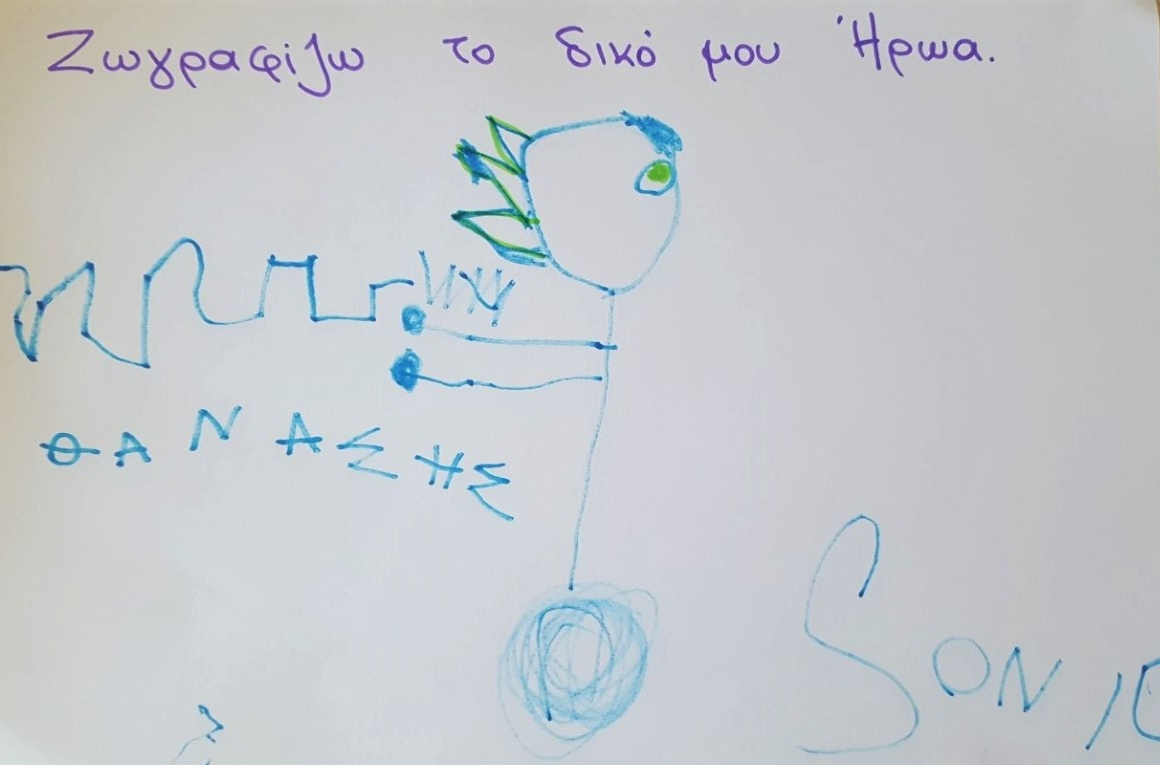 Ζωγραφίζω το δικό μου Ήρωα.
ΘΑΝΑΣΗΣ
SONIC